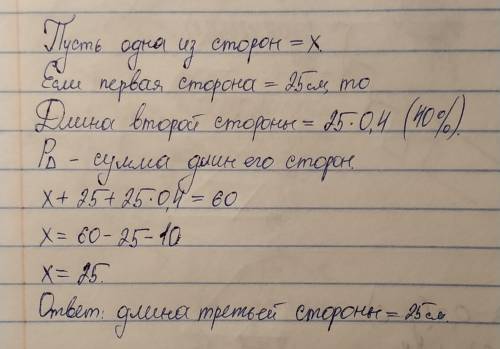 Пусть одна из сторон = x.
Если первая сторона = 25см, то
Длина второй стороны = 25·0,4 (40%).
P∆ - сумма длин его сторон.
x + 25 + 25·0,4 = 60
x = 60 - 25 - 10
x = 25.
Ответ: длина третьей стороны = 25см.